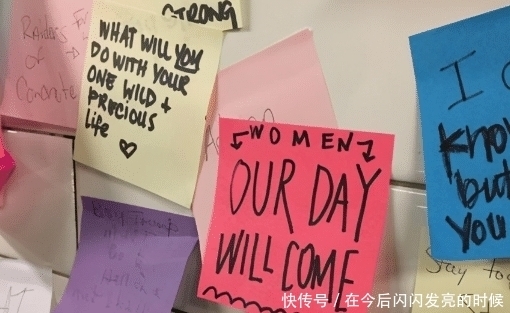 STRONG
Raiders
of
Concrete
WHAT WILL YOU
DO WITH YOUR
ONE WILD +
PRECIOUS
Life ♡
WOMEN
OUR DAY
WILL COME
I
Know
but
You
Stay
快传号 / 在今后闪闪发亮的时候